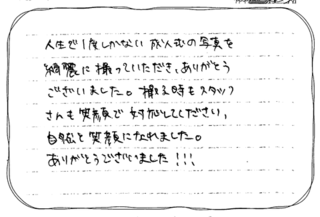 人生で1度しかない成人式の写真を
綺麗に撮っていただき、ありがとう
ございました。撮る時もスタッフ
さんも笑顔で対応してください、
自然と笑顔になれました。
ありがとうございました!!!